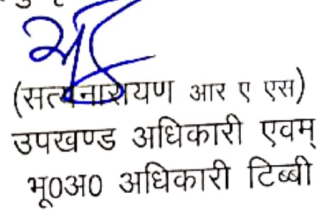 (सत्यनारायण आर ए एस)
उपखण्ड अधिकारी एवम्
भू0अ0 अधिकारी टिब्बी